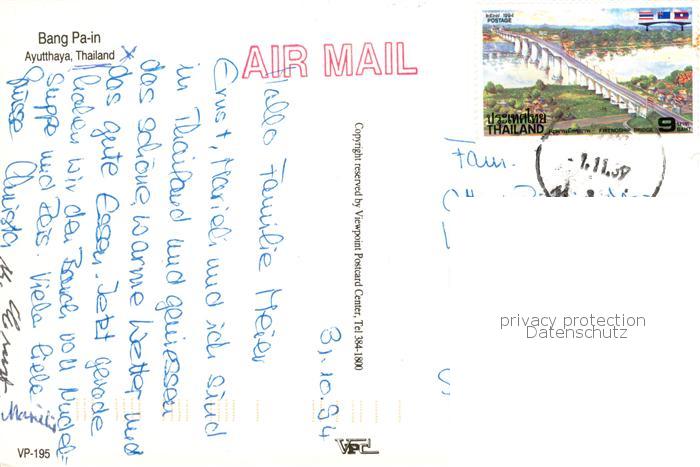 Bang Pa-in
Ayutthaya, Thailand
AIR MAIL
31.10.94
Hallo Familie Meier
Ernst, Marieli und ich sind
in Thailand und geniessen
das schöne, warme Wetter und
das gute Essen. Jetzt gerade
haben wir den Bauch voll Nudel=
suppe und Reis. Viele liebe
Grüsse Christa
Ernst
Marieli
VP-195
Copyright reserved by Viewpoint Postcard Center, Tel 384-1800
VPC
1994
POSTAGE
ประเทศไทย
THAILAND
FRIENDSHIP BRIDGE
9 บาท
BAHT
Fam.
privacy protection
Datenschutz